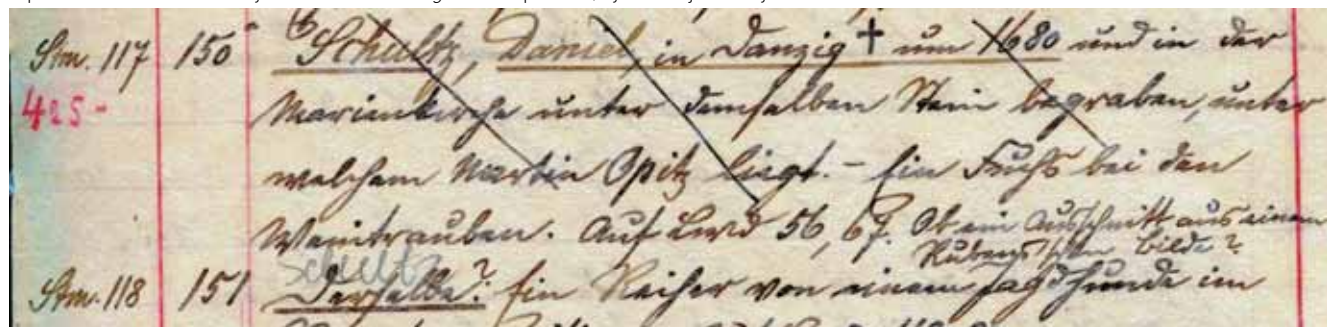 Stm. 117 150 Schultz, Daniel, in Danzig † um 1680 und in der
425- Marienkirche unter demselben Stein begraben, unter
welchem Martin Opitz liegt. – Ein Fuchs bei den
Weintrauben. Auf Lwd 56, 67. Ob ein Ausschnitt aus einem
Rubens'schen Bilde?
Schultz
Stm. 118 151 Derselbe? Ein Reiher von einem Jagdhunde im